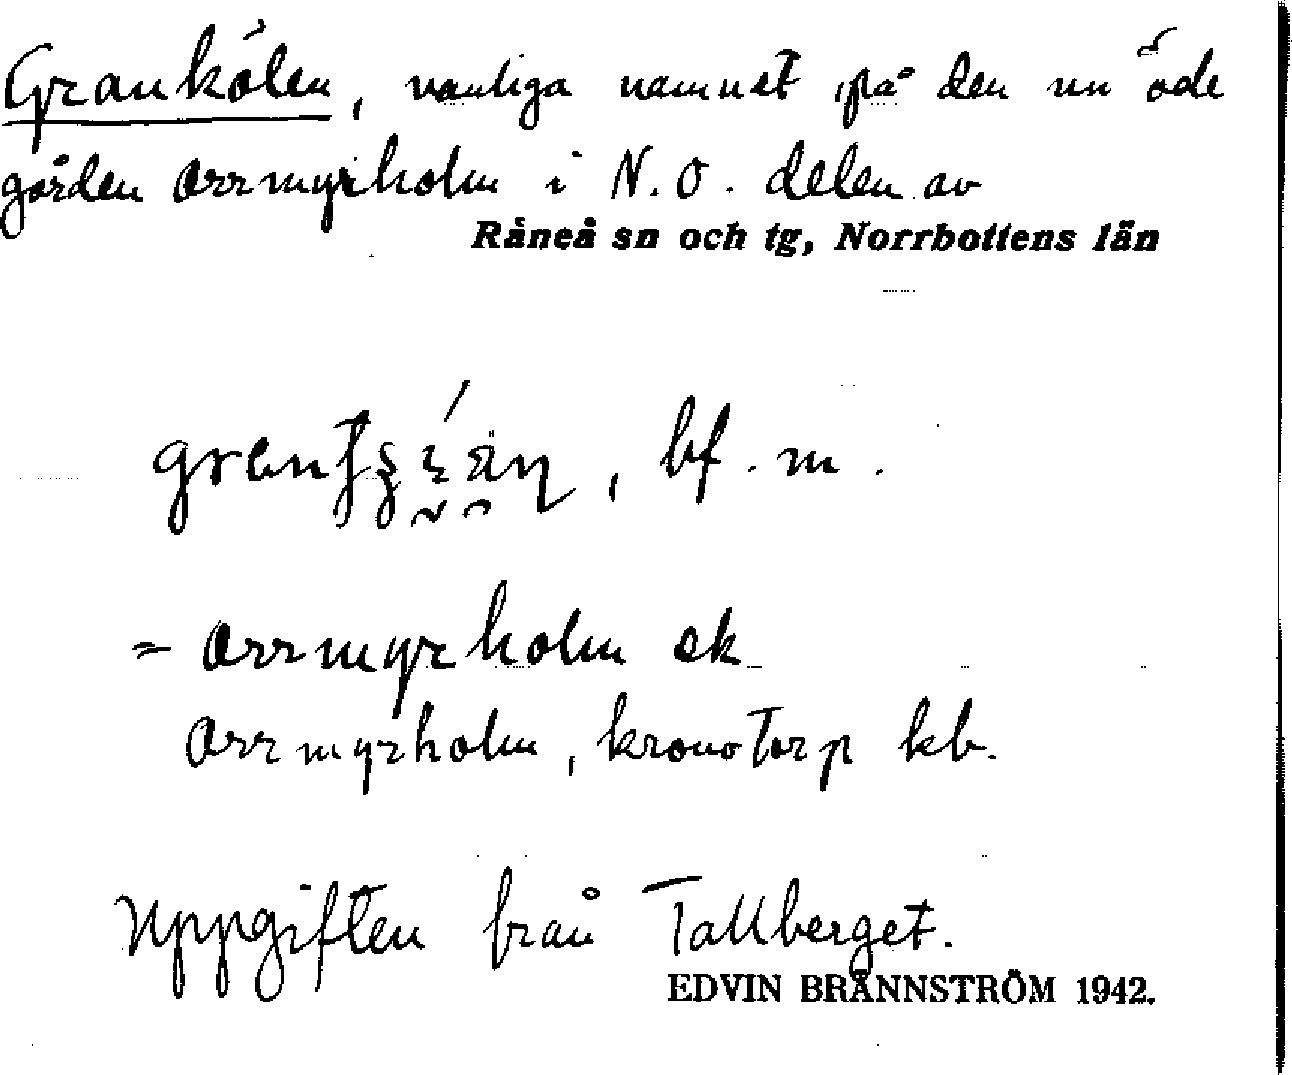 Grankölen, vanliga namnet på den nu öde
gården Orrmyrholm i N.O. delen av
Råneå sn och tg, Norrbottens län
, bf. m.
= Orrmyrholm ek
Orrmyrholm, kronotorp kb.
Uppgiften från Tallberget.
EDVIN BRÄNNSTRÖM 1942.